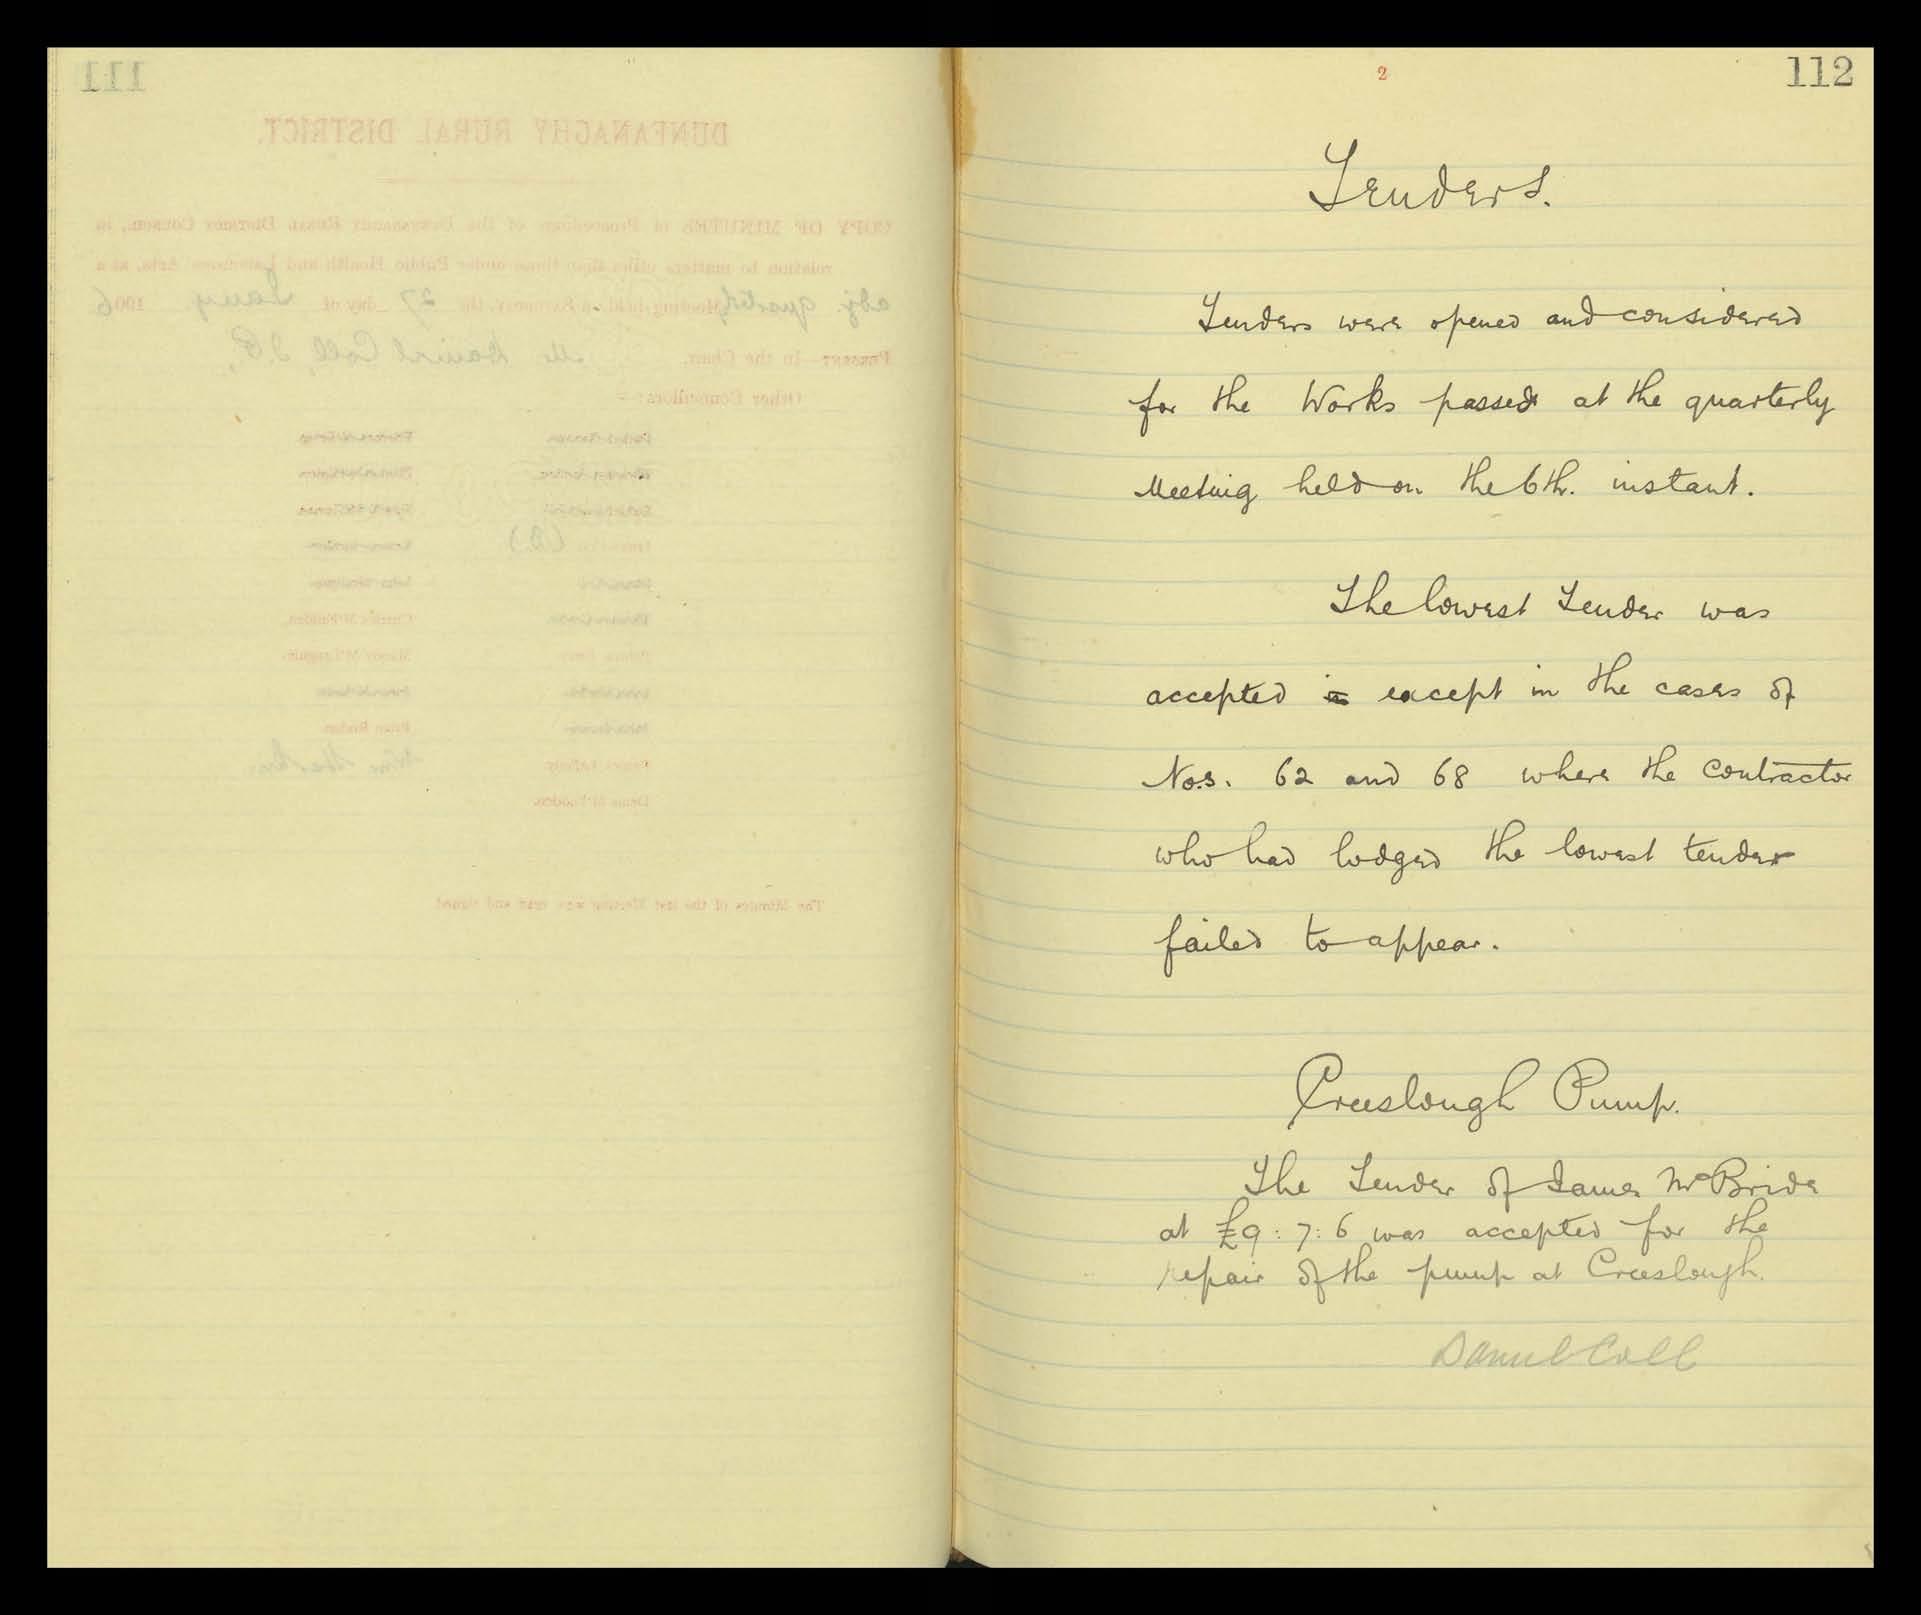 111
DUNFANAGHY RURAL DISTRICT.
COPY OF MINUTES of Proceedings of the Dunfanaghy Rural District Council, in
relation to matters other than those under Public Health and Labourers Acts, at a
adj. quarterly Meeting held on the 27 day of Jany. 1906
PRESENT—In the Chair, Mr Daniel Coll, J.P.,
Other Councillors:—
The Minutes of the last Meeting was read and signed
2
112
Tenders.
Tenders were opened and considered
for the Works passed at the quarterly
Meeting held on the 6th. instant.
The lowest Tender was
accepted in except in the cases of
Nos. 62 and 68 where the contractor
who had lodged the lowest tender
failed to appear.
Creeslough Pump.
The Tender of James McBride
at £9:7:6 was accepted for the
repair of the pump at Creeslough.
Daniel Coll